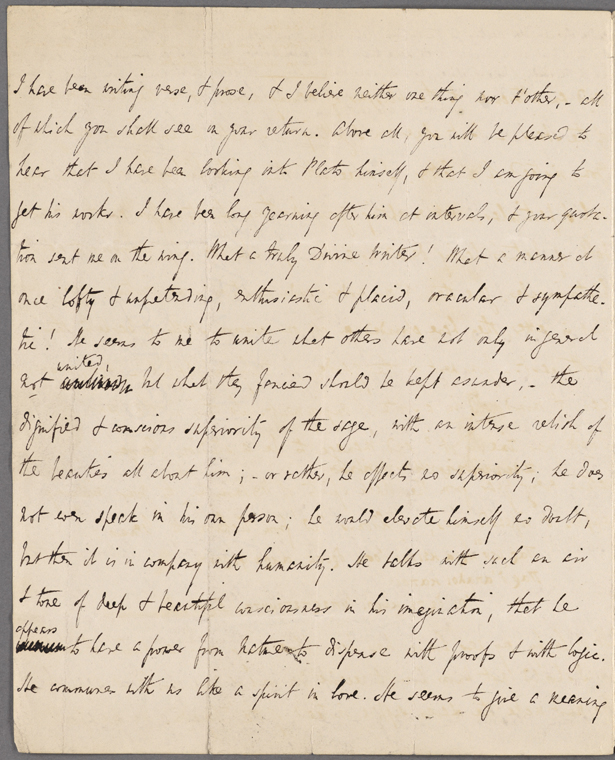 I have been writing verse, & prose, & I believe neither one thing nor t'other, - all
of which you shall see on your return. Above all, you will be pleased to
hear that I have been looking into Plato himself, & that I am going to
get his works. I have been long yearning after him at intervals, & your quota-
tion sent me on the wing. What a truly Divine Writer! What a manner at
once lofty & unpretending, enthusiastic & placid, oracular & sympathe-
tic! He seems to me to unite what others have not only in general
united,
not but what they fancied should be kept asunder, - the
dignified & conscious superiority of the sage, with an intense relish of
the beauties all about him; - or rather, he affects no superiority; he does
not even speak in his own person; he would elevate himself no doubt,
but then it is in company with humanity. He talks with such an air
& tone of deep & beautiful consciousness in his imagination, that he
appears
to have a power from Nature to dispense with proofs & with logic.
He communes with us like a spirit in love. He seems to give a meaning